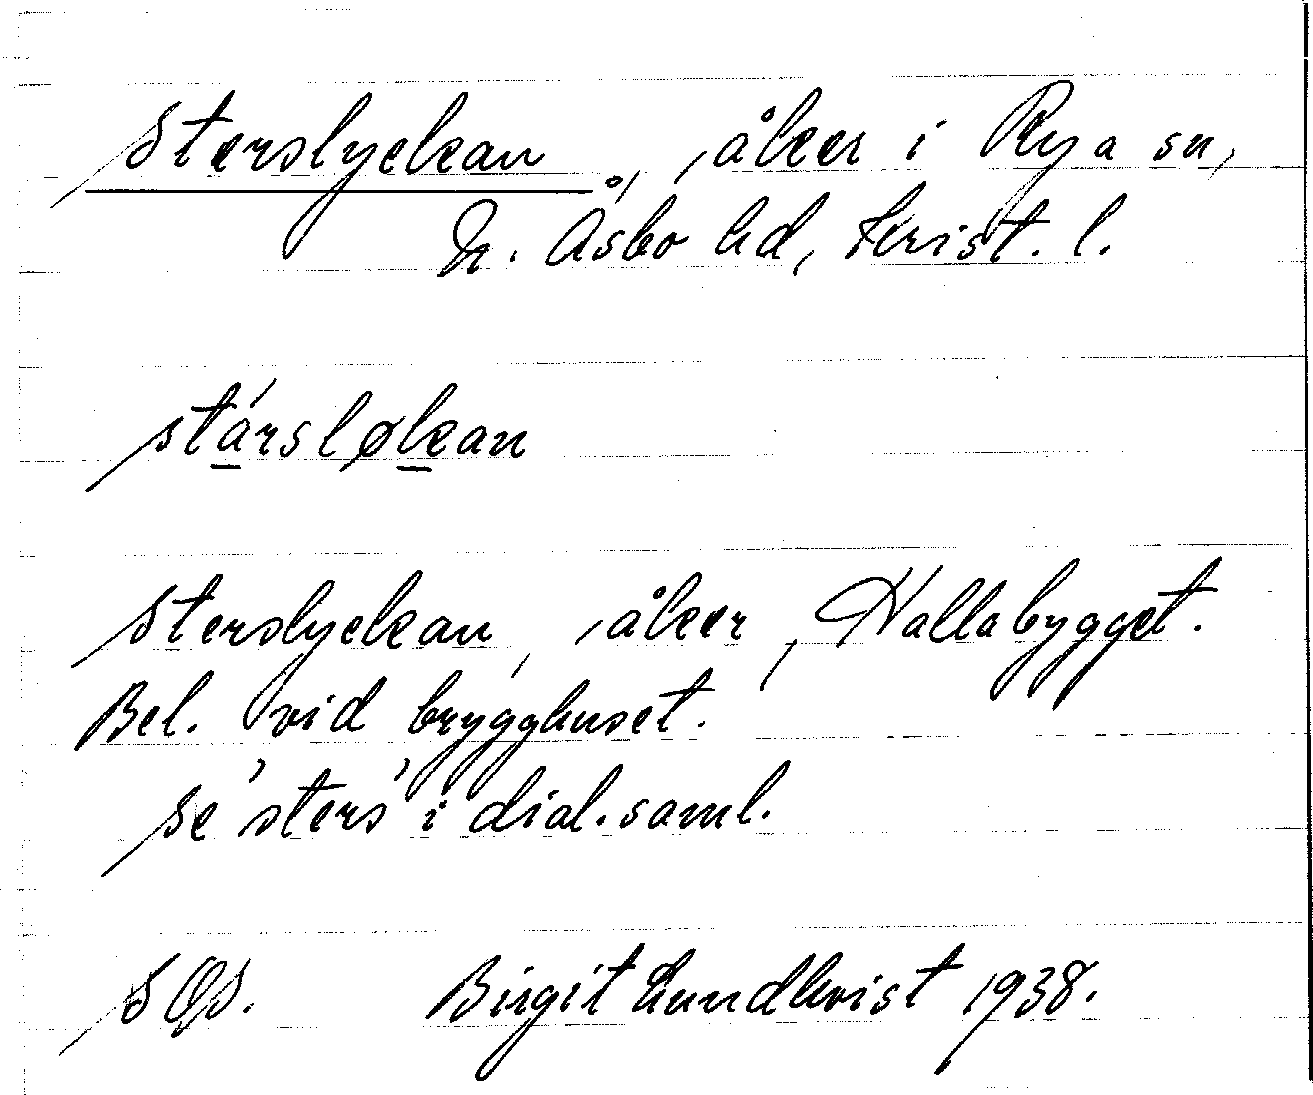 Sterslyckan, åker i Rya sn,
N. Åsbo hd, Krist. l.
stá̱rsløḵan
Sterslyckan, åker, Hallabygget.
Bel. vid brygghuset.
se 'sters' i dial. saml.
SOS. Birgit Lundkvist 1938.